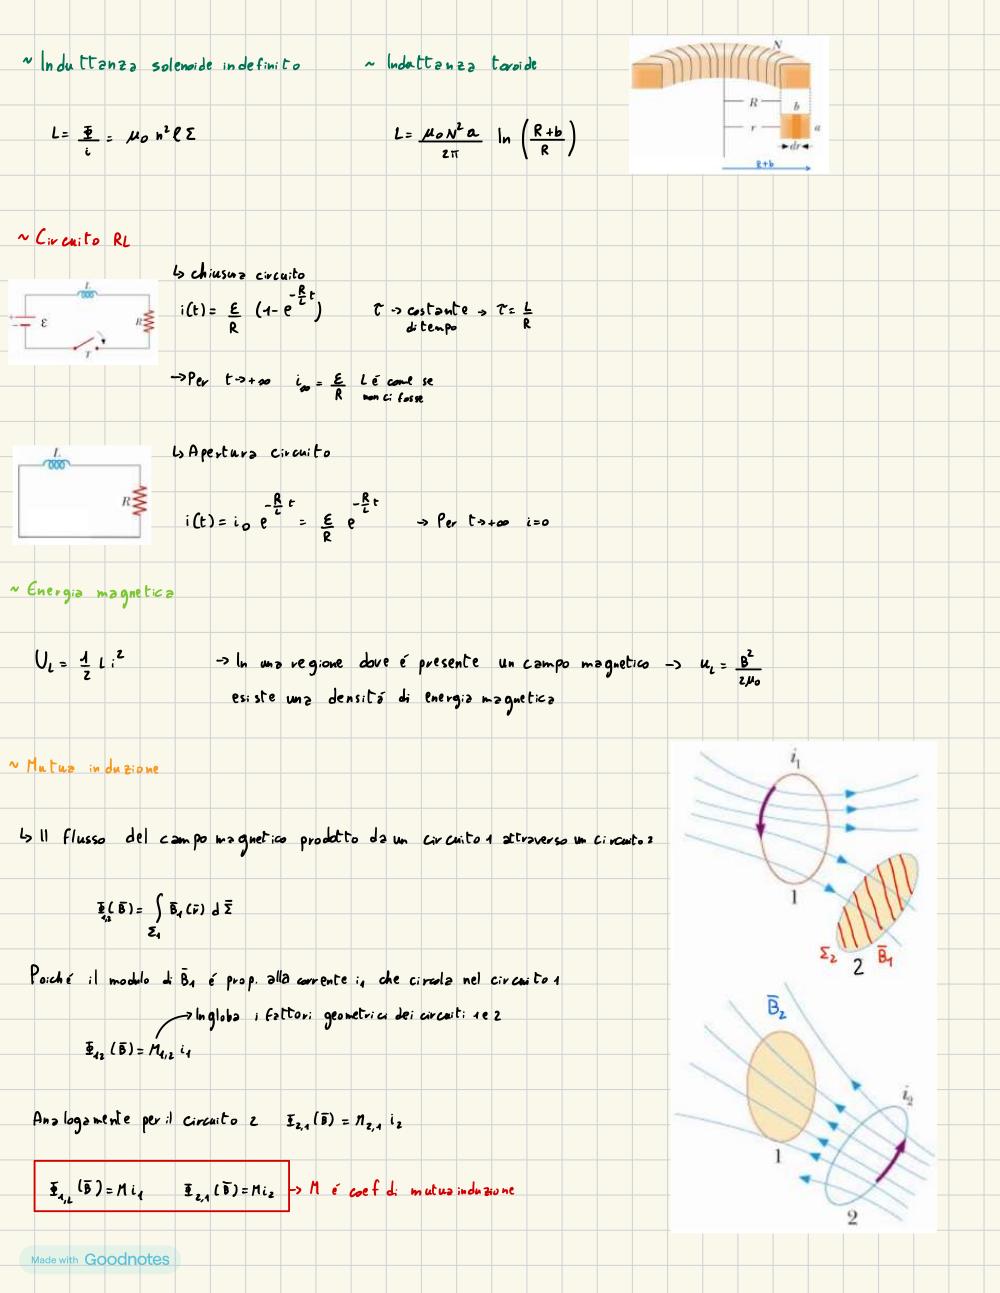 ~ Induttanza solenoide indefinito
~ Induttanza toroide
N
R
b
r
a
dr
R+b
L = Φ/i = μ₀ n² ℓ Σ
L = μ₀N²a/2π ln (R+b/R)
~ Circuito RL
↳ chiusura circuito
L
ε
R
T
i(t) = ε/R (1-e^(-R/L t))
τ → costante di tempo → τ = L/R
→ Per t→+∞ i∞ = ε/R L é come se non ci fosse
↳ Apertura circuito
L
R
i(t) = i₀ e^(-R/L t) = ε/R e^(-R/L t) → Per t→+∞ i=0
~ Energia magnetica
U_L = 1/2 L i²
→ In una regione dove é presente un campo magnetico → u_L = B²/2μ₀
esiste una densitá di energia magnetica
~ Mutua induzione
↳ Il flusso del campo magnetico prodotto da un circuito 1 attraverso un circuito 2
Φ₁,₂(B̄) = ∫_Σ₁ B̄₁(r̄) dΣ̄
Poiché il modulo di B̄₁ é prop. alla corrente i₁ che circola nel circuito 1
→ Ingloba i fattori geometrici dei circuiti 1 e 2
Φ₁₂(B̄) = M₁,₂ i₁
Analogamente per il circuito 2 Φ₂,₁(B̄) = M₂,₁ i₂
Φ₁,₂(B̄) = M i₁ Φ₂,₁(B̄) = M i₂ → M é coef di mutua induzione
i₁
1
Σ₂
2
B̄₁
B̄₂
i₂
1
2
Made with Goodnotes